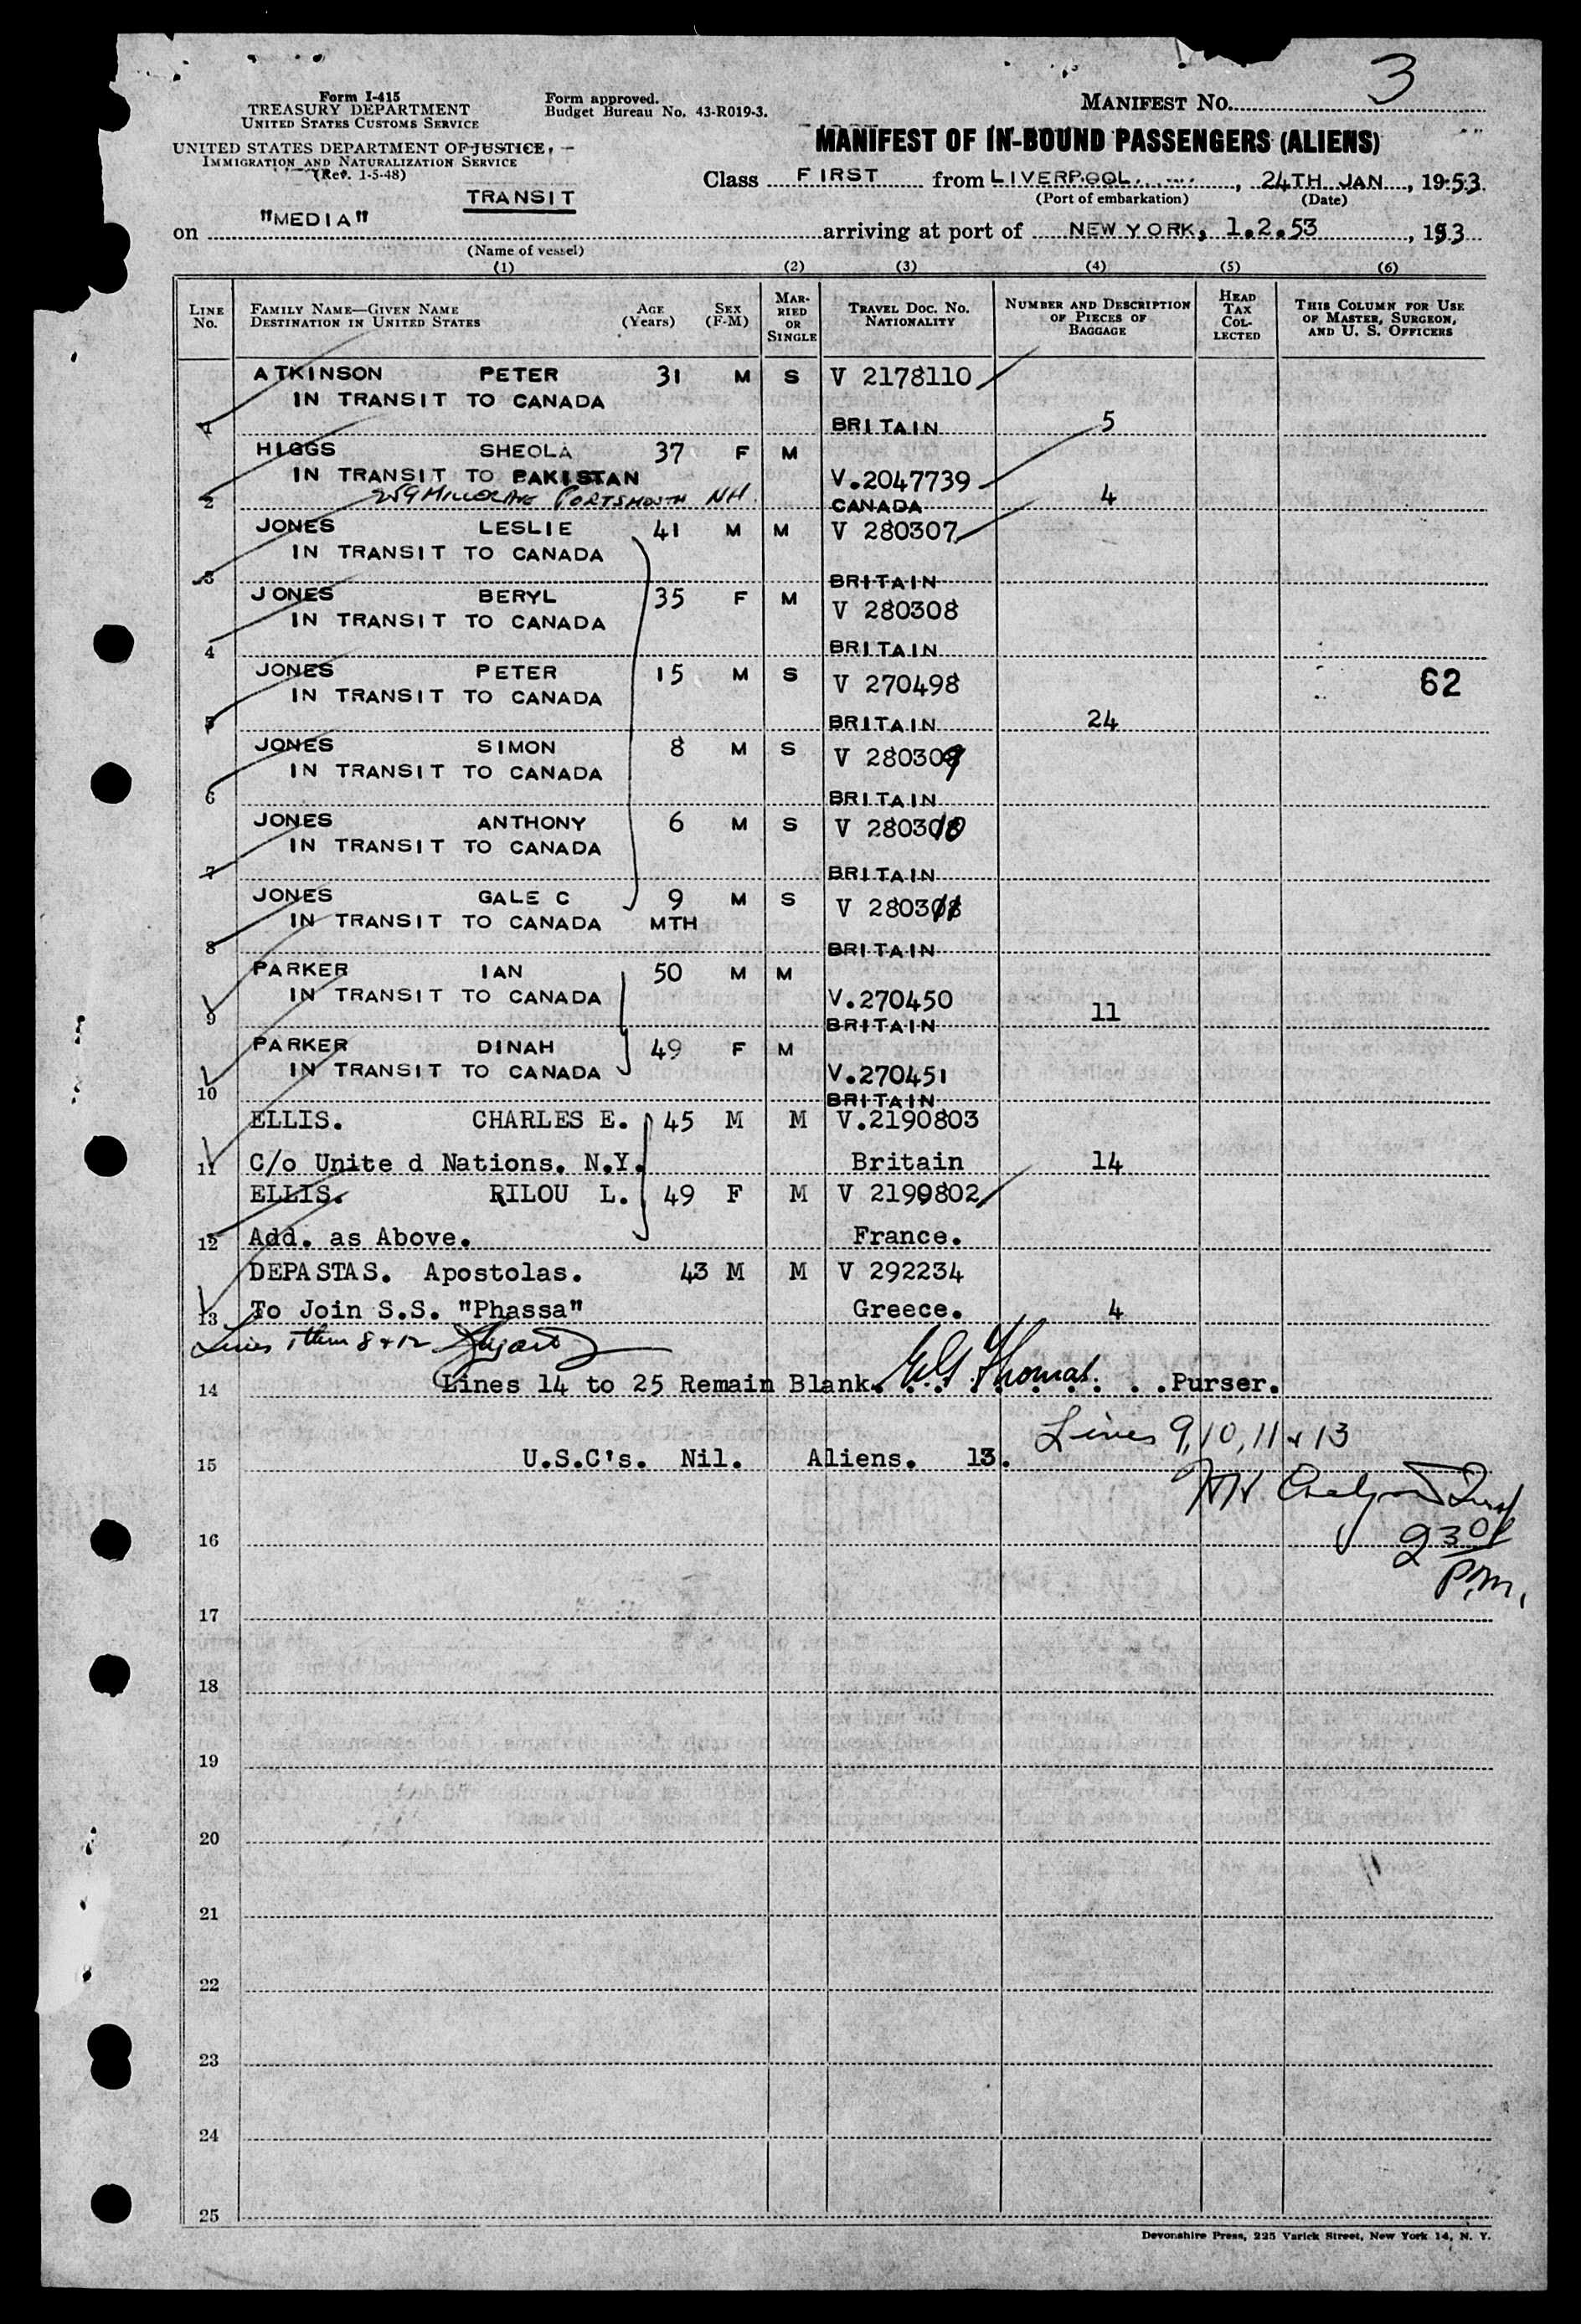 3
Form I-415
TREASURY DEPARTMENT
UNITED STATES CUSTOMS SERVICE
UNITED STATES DEPARTMENT OF JUSTICE,
IMMIGRATION AND NATURALIZATION SERVICE
(Rev. 1-5-48)
Form approved.
Budget Bureau No. 43-R019-3.
MANIFEST No.
MANIFEST OF IN-BOUND PASSENGERS (ALIENS)
TRANSIT
Class FIRST from LIVERPOOL, 24TH JAN, 1953.
(Port of embarkation) (Date)
on "MEDIA" arriving at port of NEW YORK, 1.2.53, 1953
(Name of vessel)
(1) (2) (3) (4) (5) (6)
LINE No. FAMILY NAME—GIVEN NAME DESTINATION IN UNITED STATES AGE (Years) SEX (F-M) MARRIED OR SINGLE TRAVEL DOC. No. NATIONALITY NUMBER AND DESCRIPTION OF PIECES OF BAGGAGE HEAD TAX COLLECTED THIS COLUMN FOR USE OF MASTER, SURGEON, AND U. S. OFFICERS
ATKINSON PETER 31 M S V 2178110
IN TRANSIT TO CANADA
1 BRITAIN 5
HIGGS SHEOLA 37 F M
IN TRANSIT TO PAKISTAN V.2047739
2 Portsmouth NH. CANADA 4
JONES LESLIE 41 M M V 280307
IN TRANSIT TO CANADA
3 BRITAIN
JONES BERYL 35 F M V 280308
IN TRANSIT TO CANADA
4 BRITAIN
JONES PETER 15 M S V 270498 62
IN TRANSIT TO CANADA
5 BRITAIN 24
JONES SIMON 8 M S V 280309
IN TRANSIT TO CANADA
6 BRITAIN
JONES ANTHONY 6 M S V 280310
IN TRANSIT TO CANADA
7 BRITAIN
JONES GALE C 9 M S V 280311
IN TRANSIT TO CANADA MTH
8 BRITAIN
PARKER IAN 50 M M
IN TRANSIT TO CANADA V.270450
9 BRITAIN 11
PARKER DINAH 49 F M
IN TRANSIT TO CANADA V.270451
10 BRITAIN
ELLIS. CHARLES E. 45 M M V.2190803
11 C/o Unite d Nations. N.Y. Britain 14
ELLIS. RILOU L. 49 F M V 2199802
12 Add. as Above. France.
DEPASTAS. Apostolas. 43 M M V 292234
13 To Join S.S. "Phassa" Greece. 4
Lines 1 thru 8 & 12
14 Lines 14 to 25 Remain Blank. Thomas Purser.
Lines 9, 10, 11 & 13
15 U.S.C's. Nil. Aliens. 13.
16
2 30
P.M.
17
18
19
20
21
22
23
24
25
Devonshire Press, 225 Varick Street, New York 14, N. Y.